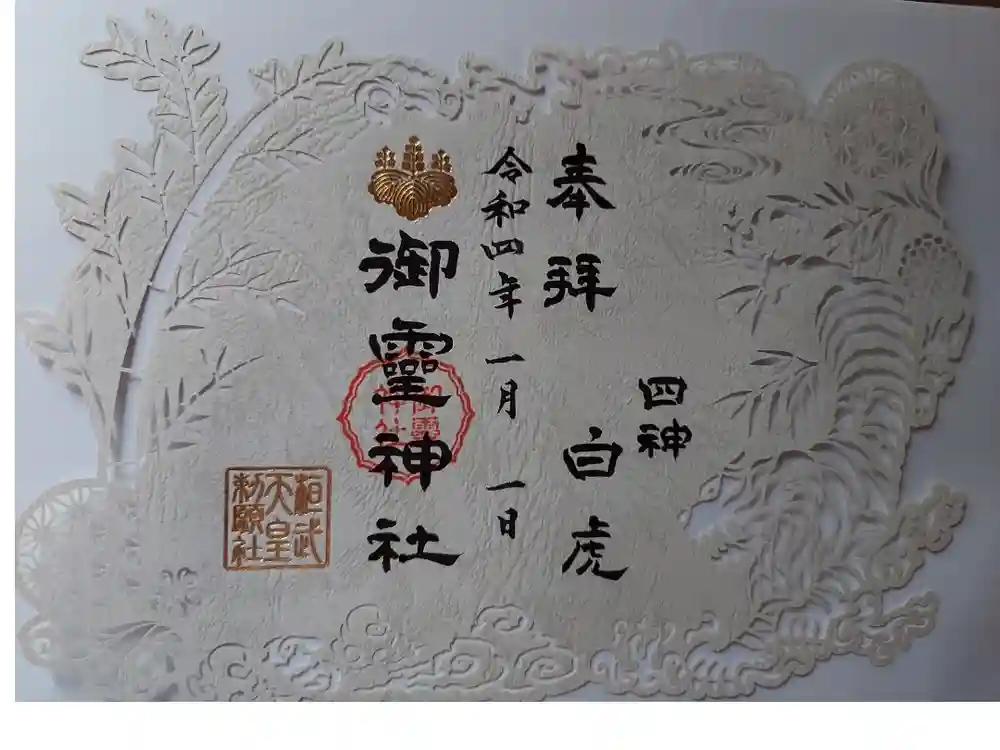 四神
奉拜 白虎
令和四年 一月 一日
御靈神社
桓武
天皇
勅願社